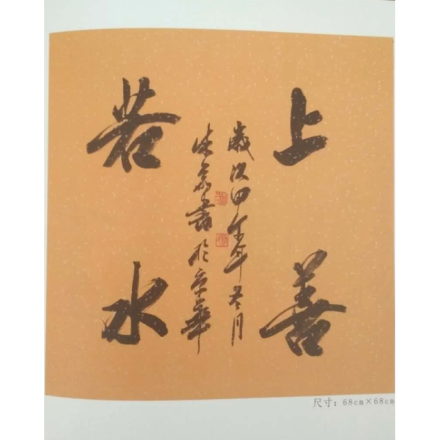 上善
若水
歲次甲午年冬月
書於京華
尺寸：68cm×68cm